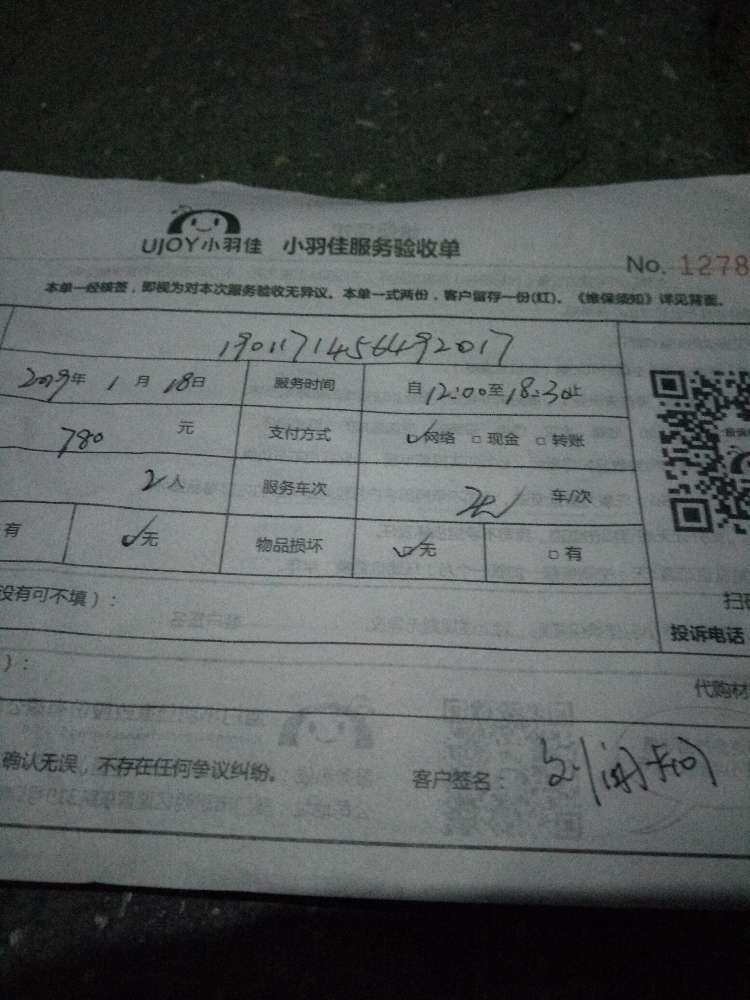 UJOY小羽佳 小羽佳服务验收单
No. 1278
本单一经核签，即视为对本次服务验收无异议。本单一式两份，客户留存一份(红)。《维保须知》详见背面。
190117145649 2017
2019年 1 月 18日 服务时间 自12:00至18:30止
780 元 支付方式 网络 现金 转账
2 人 服务车次 车/次
有 无 物品损坏 无 有
没有可不填）：
扫
投诉电话
）：
代购材
确认无误，不存在任何争议纠纷。 客户签名：